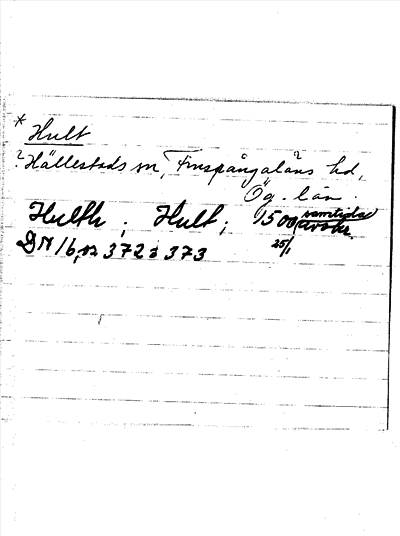 * Hult
? Hällestads sn, Finspångaläns hd,
?
Ög. län
Hulth ; Hult ; 1500 samtidad avskr.
25/1
DN 16, nr 372 o 373